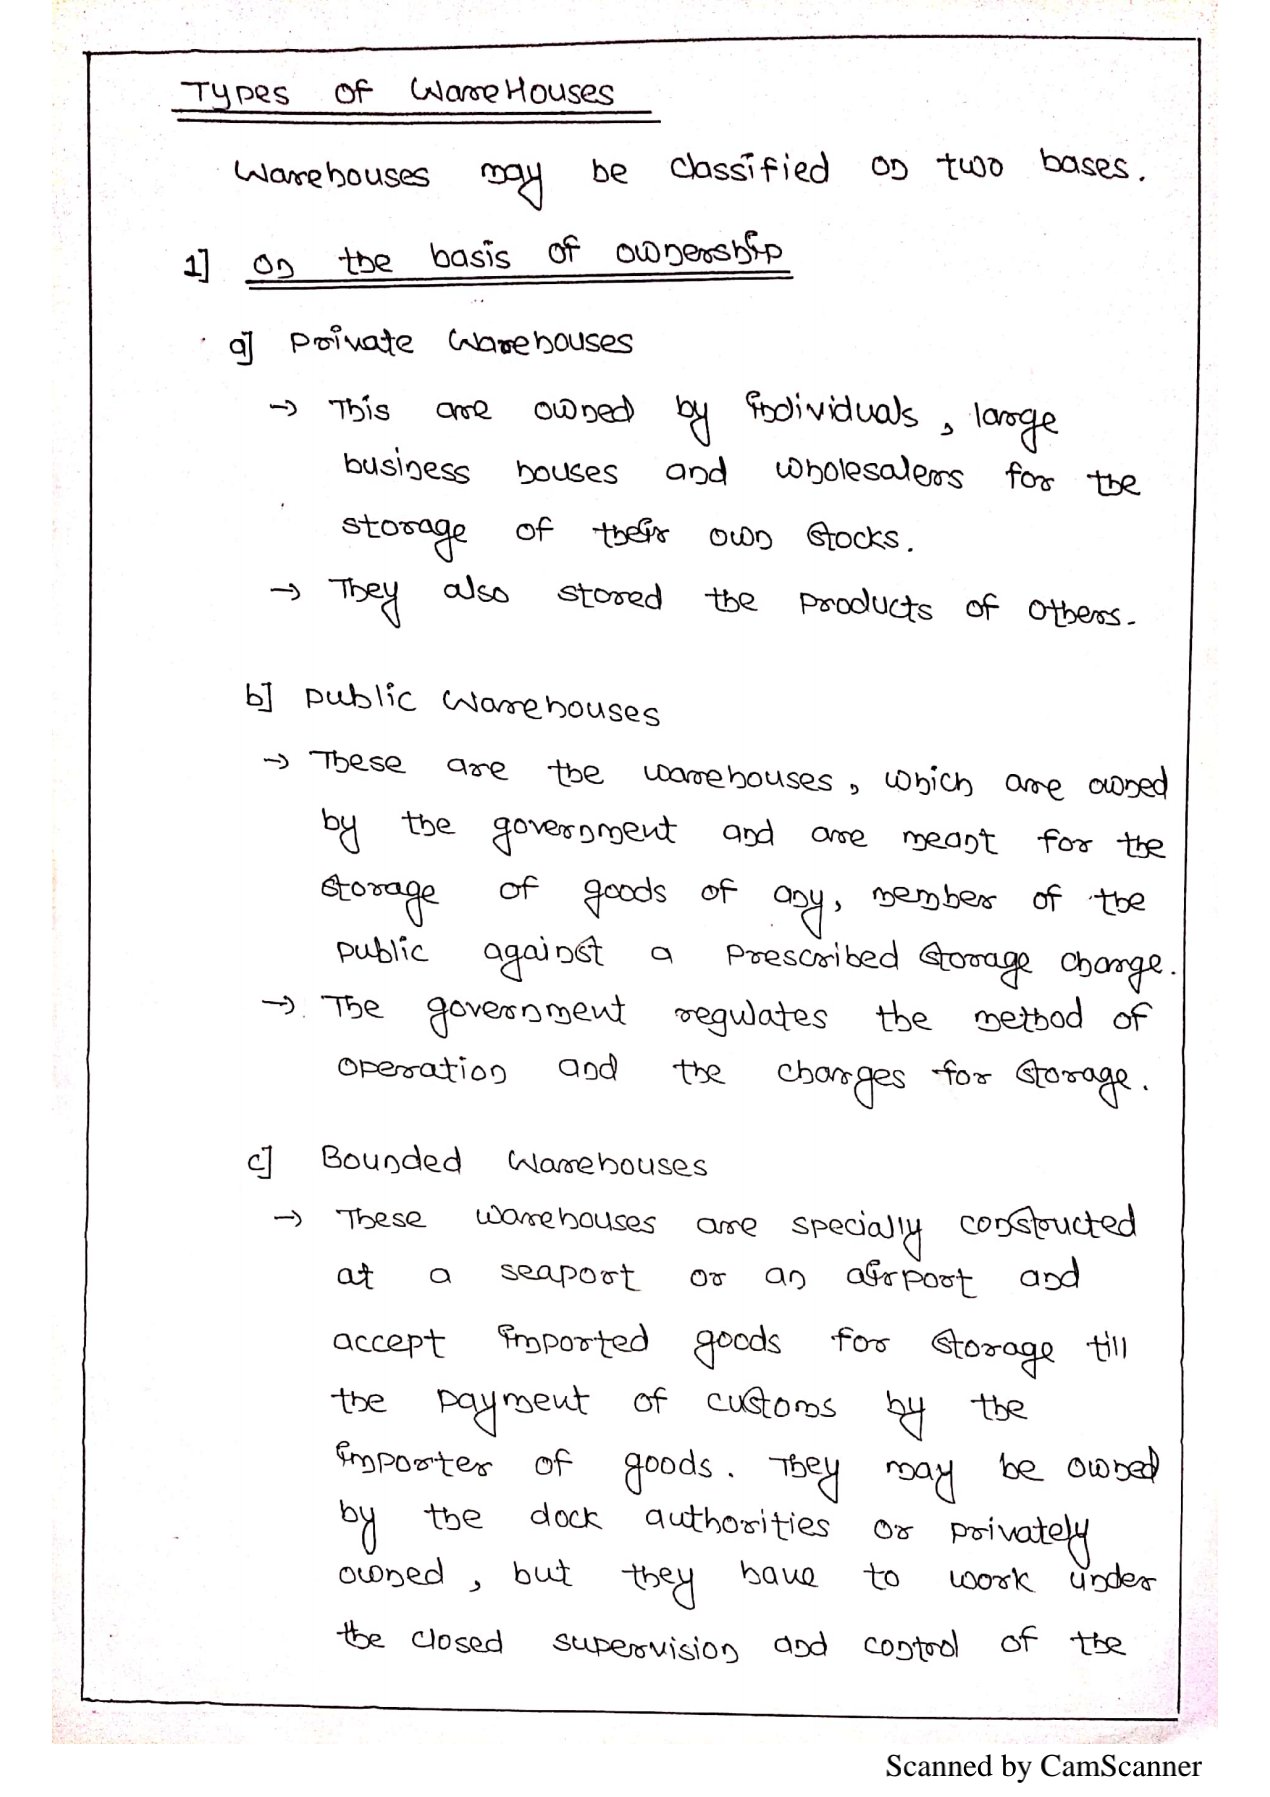 Types of WareHouses
Warehouses may be classified on two bases.
1] on the basis of ownership
a] Private Warehouses
→ This are owned by individuals, large
business houses and wholesalers for the
storage of their own stocks.
→ They also stored the products of others.
b] Public Warehouses
→ These are the warehouses, which are owned
by the government and are meant for the
storage of goods of any, member of the
public against a prescribed storage charge.
→ The government regulates the method of
operation and the charges for storage.
c] Bounded Warehouses
→ These warehouses are specially constructed
at a seaport or an airport and
accept imported goods for storage till
the payment of customs by the
importer of goods. They may be owned
by the dock authorities or privately
owned, but they have to work under
the closed supervision and control of the
Scanned by CamScanner